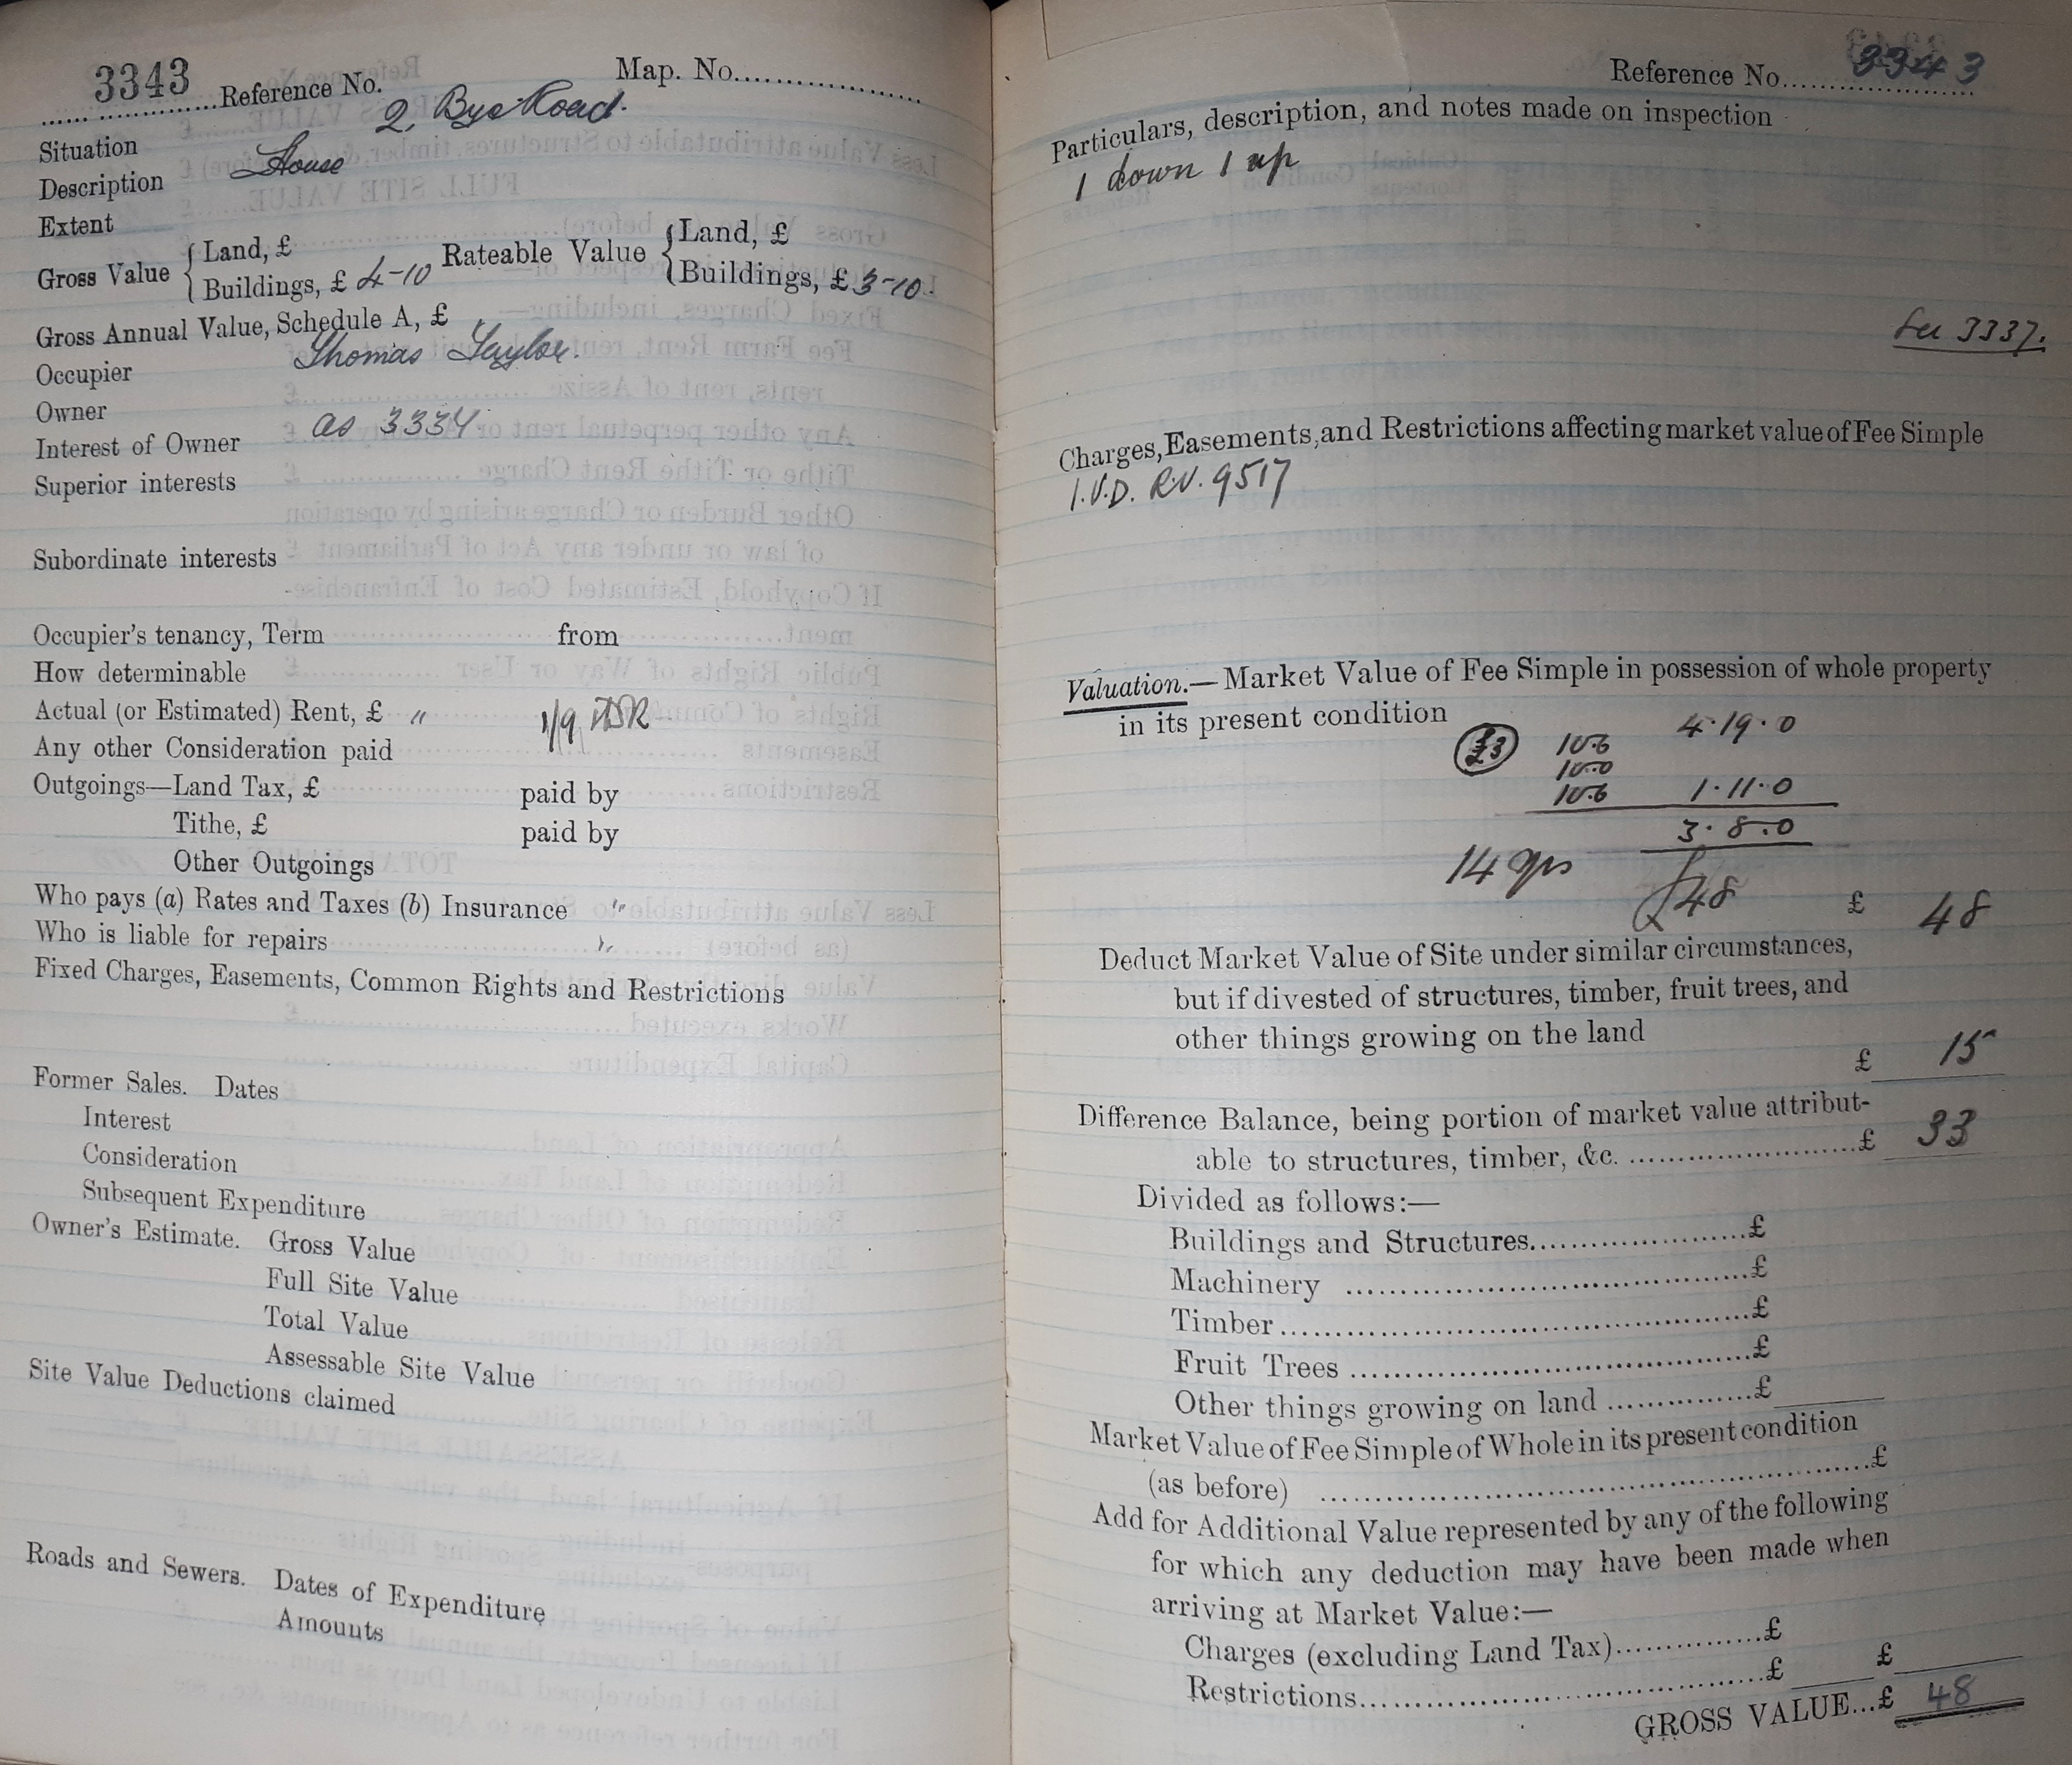 3343
Reference No. Map. No.
Situation 2, Bye Road.
Description House
Extent
Gross Value { Land, £
Buildings, £ 4-10
Rateable Value { Land, £
Buildings, £ 3-10.
Gross Annual Value, Schedule A, £
Occupier Thomas Taylor.
Owner
Interest of Owner as 3334.
Superior interests
Subordinate interests
Occupier's tenancy, Term from
How determinable
Actual (or Estimated) Rent, £ " 1/9
Any other Consideration paid
Outgoings—Land Tax, £ paid by
Tithe, £ paid by
Other Outgoings
Who pays (a) Rates and Taxes (b) Insurance "
Who is liable for repairs "
Fixed Charges, Easements, Common Rights and Restrictions
Former Sales. Dates
Interest
Consideration
Subsequent Expenditure
Owner's Estimate. Gross Value
Full Site Value
Total Value
Assessable Site Value
Site Value Deductions claimed
Roads and Sewers. Dates of Expenditure
Amounts
Reference No. 3343
Particulars, description, and notes made on inspection
1 down 1 up
See 3337.
Charges, Easements, and Restrictions affecting market value of Fee Simple
I.V.D. R.V. 9517
Valuation.—Market Value of Fee Simple in possession of whole property
in its present condition
£3 10.6 4.19.0
10.0
10.6 1.11.0
3.8.0
14 yrs £48 £ 48
Deduct Market Value of Site under similar circumstances,
but if divested of structures, timber, fruit trees, and
other things growing on the land
£ 15
Difference Balance, being portion of market value attribut-
able to structures, timber, &c. £ 33
Divided as follows:—
Buildings and Structures £
Machinery £
Timber £
Fruit Trees £
Other things growing on land £
Market Value of Fee Simple of Whole in its present condition
(as before) £
Add for Additional Value represented by any of the following
for which any deduction may have been made when
arriving at Market Value:—
Charges (excluding Land Tax) £
Restrictions £ £
GROSS VALUE...£ 48